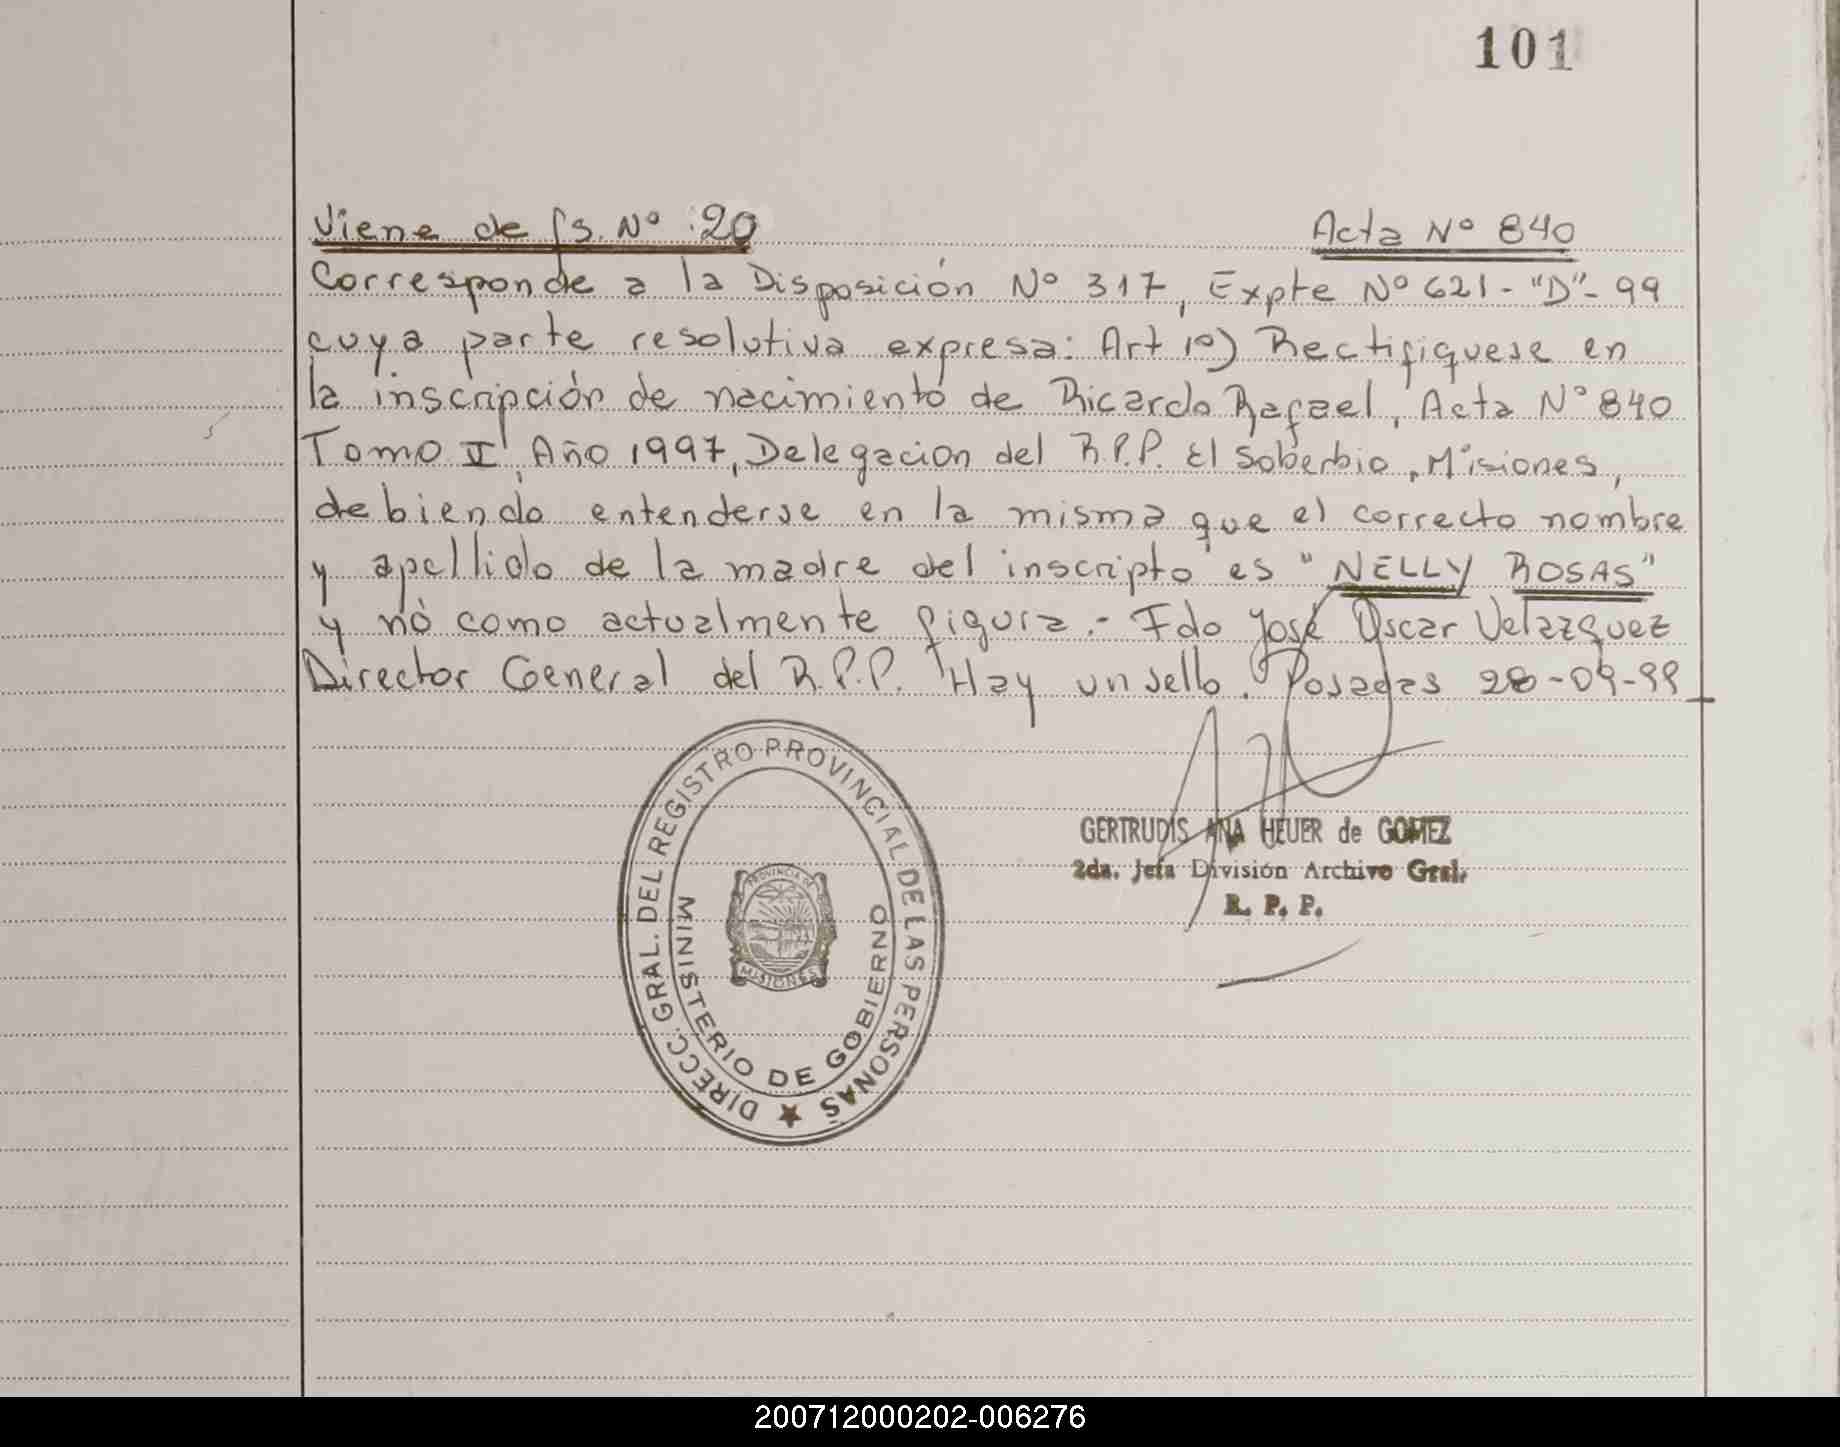 101
Viene de fs. Nº :20
Acta Nº 840
Corresponde a la Disposición Nº 317, Expte Nº 621-"D"-99
cuya parte resolutiva expresa: Art 1º) Rectifiquese en
la inscripción de nacimiento de Ricardo Rafael, Acta Nº 840
Tomo II, Año 1997, Delegacion del R.P.P. El Soberbio, Misiones,
debiendo entenderse en la misma que el correcto nombre
y apellido de la madre del inscripto es "NELLY ROSAS"
y nó como actualmente figura.- Fdo José Oscar Velazquez
Director General del R.P.P. Hay un sello. Posadas 28-09-99
DIRECC. GRAL. DEL REGISTRO PROVINCIAL DE LAS PERSONAS
MINISTERIO DE GOBIERNO
PROVINCIA DE
MISIONES
GERTRUDIS ANA HEUER de GOMEZ
2da. Jefa División Archivo Gral.
R. P. P.
200712000202-006276